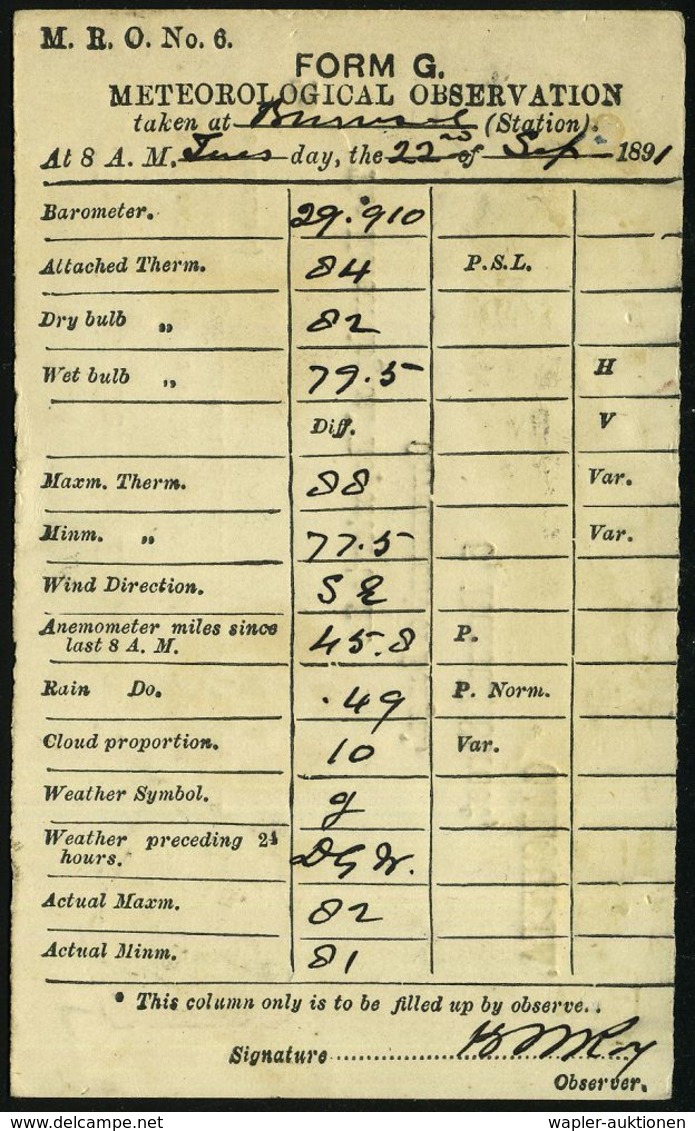 M. R. O. No. 6.
FORM G.
METEOROLOGICAL OBSERVATION
taken at (Station).
At 8 A. M. Tues day, the 22nd of Sep. 1891
Barometer. 29.910
Attached Therm. 84 P.S.L.
Dry bulb „ 82
Wet bulb „ 79.5 H
Diff. V
Maxm. Therm. 88 Var.
Minm. „ 77.5 Var.
Wind Direction. S E
Anemometer miles since
last 8 A. M. 45.8 P.
Rain Do. .49 P. Norm.
Cloud proportion. 10 Var.
Weather Symbol. g
Weather preceding 24
hours.
Actual Maxm. 82
Actual Minm. 81
* This column only is to be filled up by observe..
Signature
Observer.
wapler-auktionen